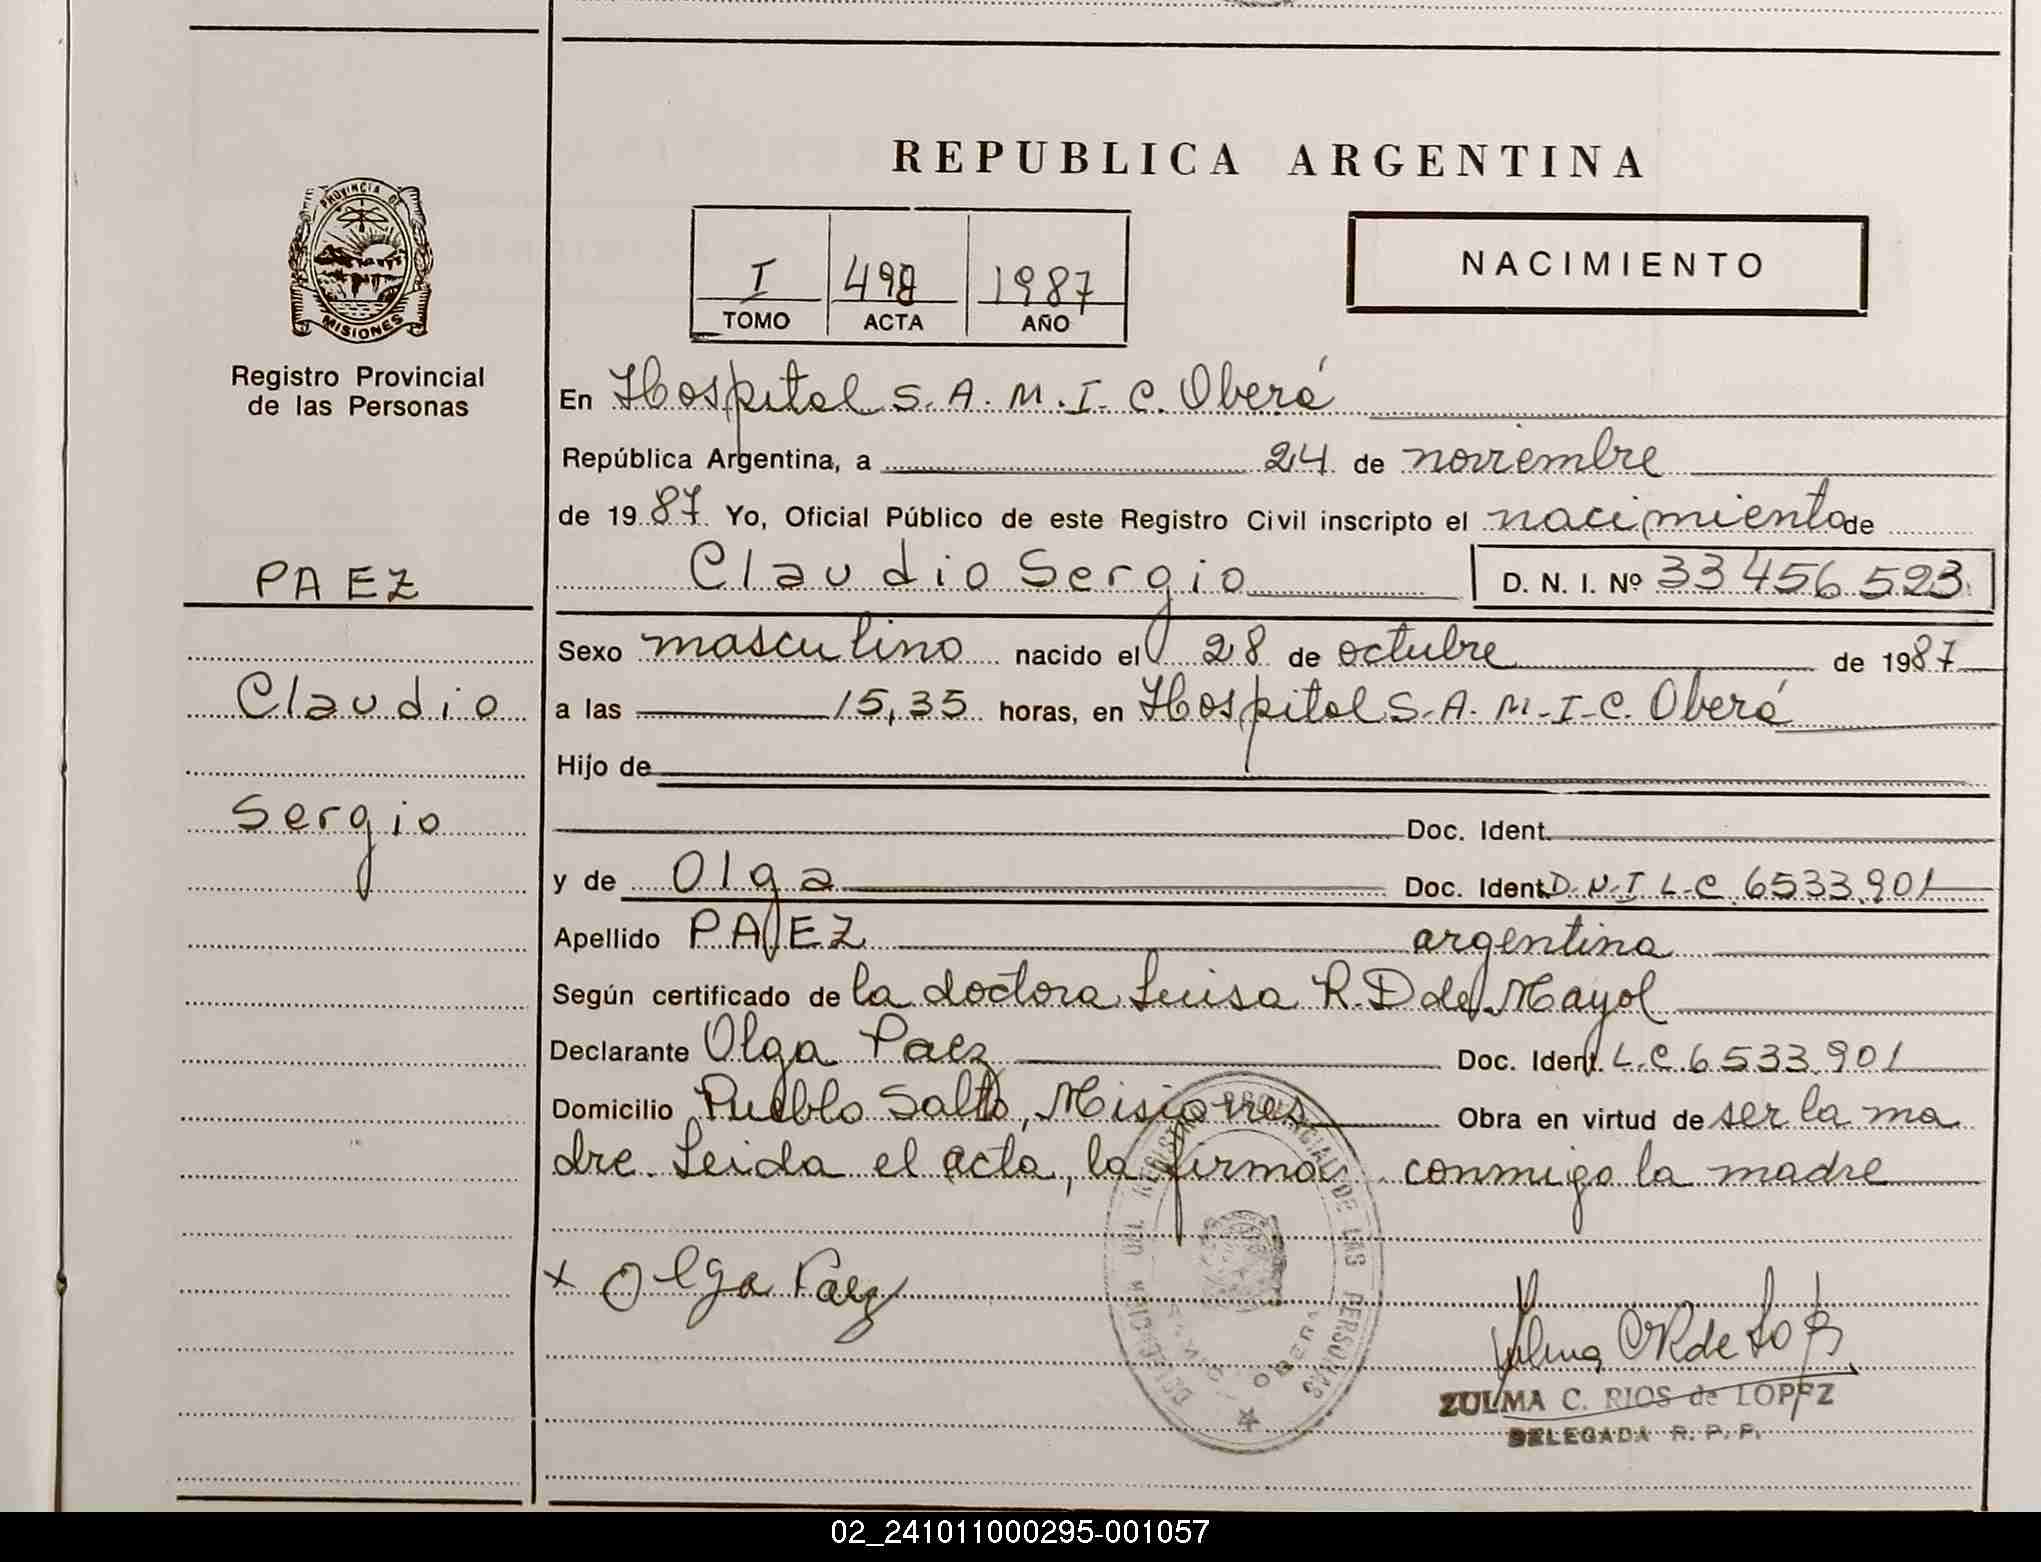 REPUBLICA ARGENTINA
PROVINCIA DE
MISIONES
Registro Provincial
de las Personas
I 498 1987
TOMO ACTA AÑO
NACIMIENTO
En Hospital S.A.M.I.C. Oberá
República Argentina, a 24 de noviembre
de 1987 Yo, Oficial Público de este Registro Civil inscripto el nacimiento de
PAEZ
Claudio Sergio D. N. I. Nº 33 456 523
Sexo masculino nacido el 28 de octubre de 1987
Claudio
a las 15,35 horas, en Hospital S.A.M.I.C. Oberá
Hijo de
Sergio
Doc. Ident.
y de Olga Doc. Ident. D.N.I L.C. 6533.901
Apellido PAEZ argentina
Según certificado de la doctora Luisa R.D de Mayol
Declarante Olga Paez Doc. Ident. L.C. 6533.901
Domicilio Pueblo Salto, Misiones Obra en virtud de ser la ma
dre. Leida el acta, la firma conmigo la madre
x Olga Paez
REGISTRO PROVINCIAL DE LAS PERSONAS
OBERA
ZULMA C. RIOS de LOPEZ
DELEGADA R. P. P.
02_241011000295-001057